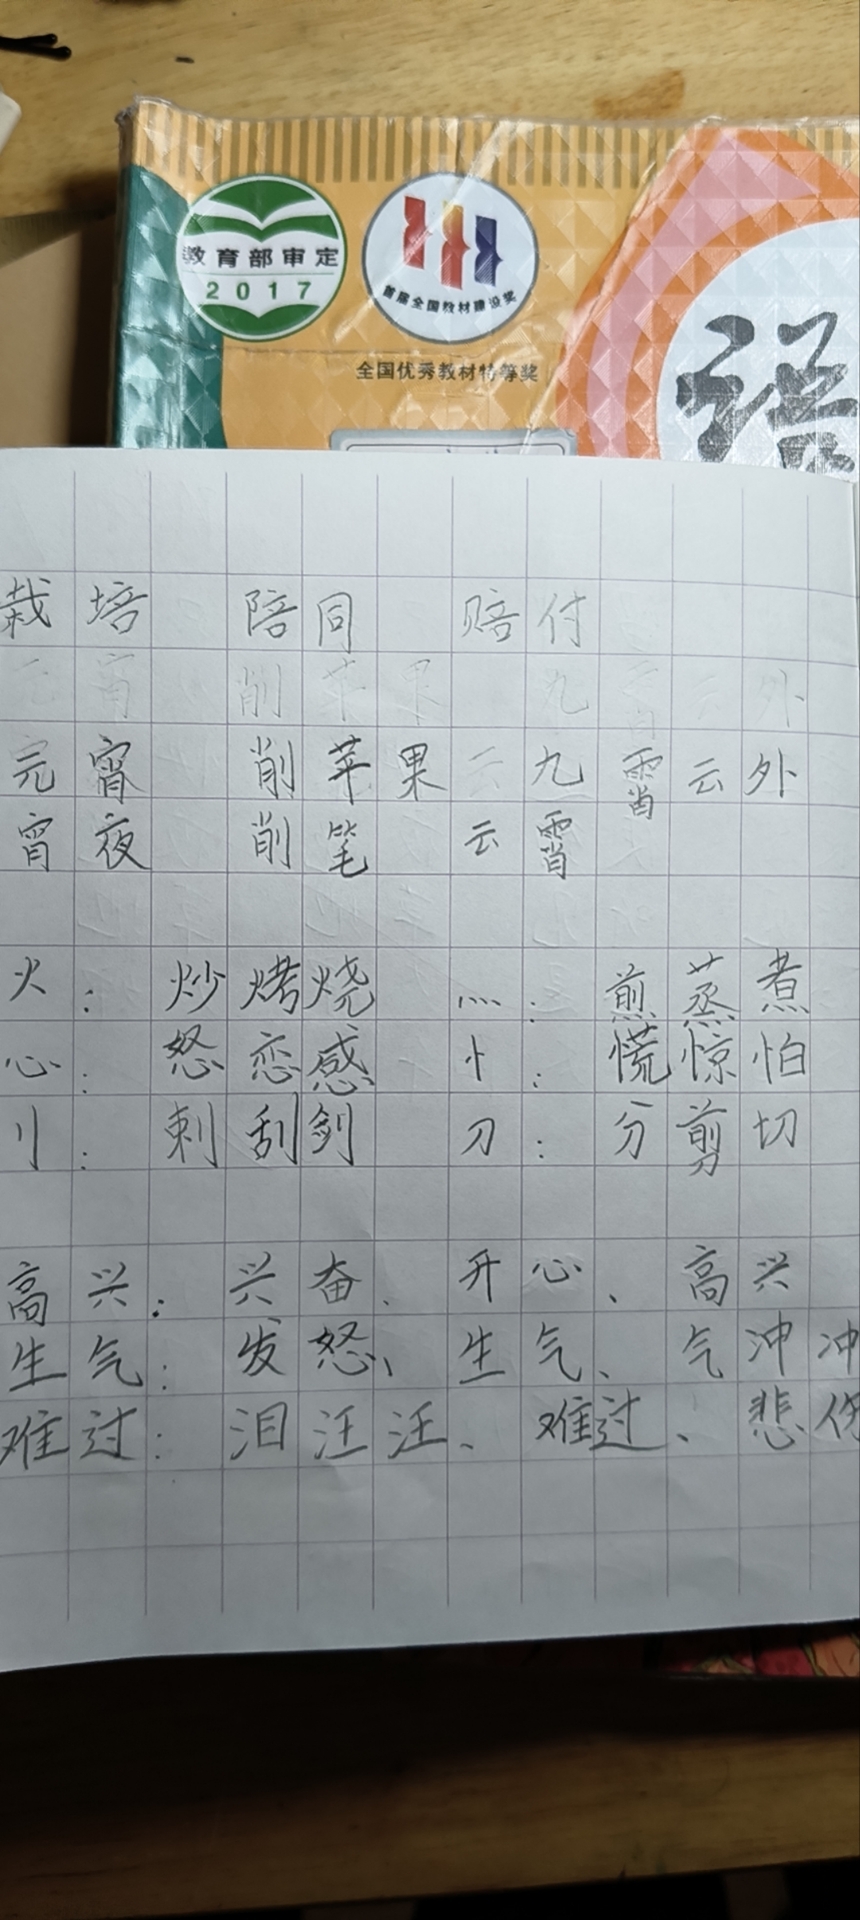 教育部审定
2017
首届全国教材建设奖
全国优秀教材特等奖
语
栽培 陪同 赔付
元宵 削苹果 九霄云外
宵夜 削笔 云霄
火: 炒烤烧 灬: 煎蒸煮
心: 怒恋感 忄: 慌惊怕
刂: 刺刮剑 刀: 分剪切
高兴: 兴奋、开心、高兴
生气: 发怒、生气、气冲冲
难过: 泪汪汪、难过、悲伤